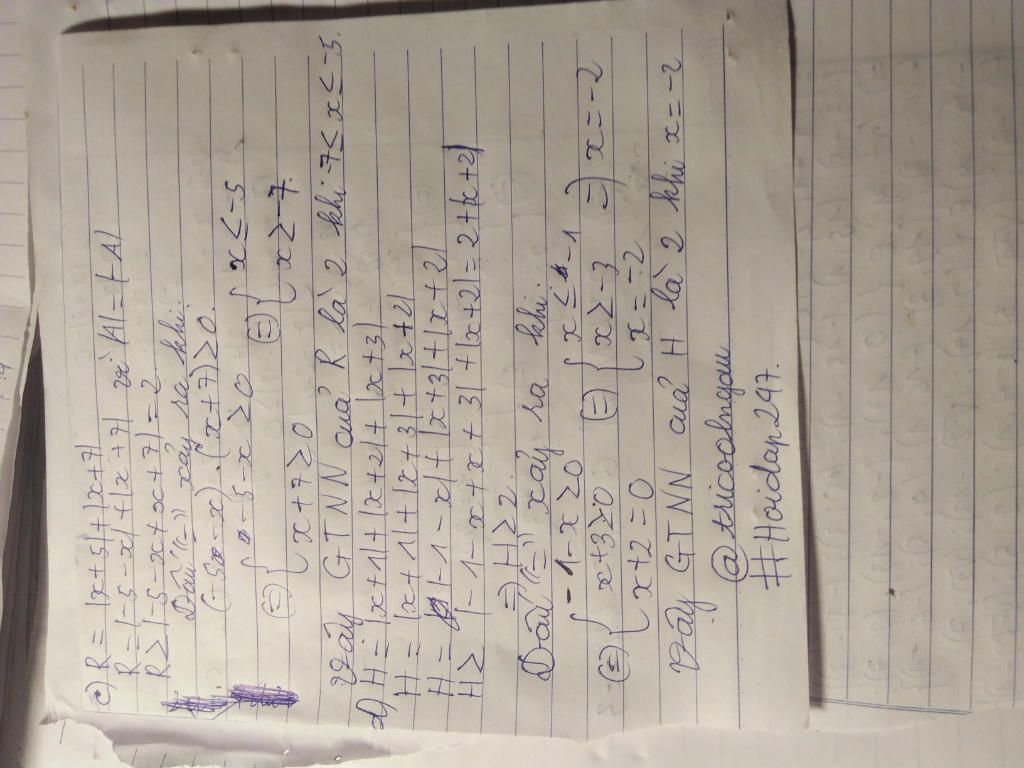 c) R = |x+5|+|x+7|
R = |-5-x|+|x+7| vì |A| = |-A|
R ≥ |-5-x+x+7| = 2
Dấu "=" xảy ra khi:
(-5-x).(x+7) ≥ 0.
(=) { -5-x ≥ 0 (=) { x ≤ -5
x+7 ≥ 0 x ≥ -7.
Vậy GTNN của R là 2 khi -7 ≤ x ≤ -5.
d) H = |x+1|+|x+2|+|x+3|
H = |x+1|+|x+3|+|x+2|
H = |-1-x|+|x+3|+|x+2|
H ≥ |-1-x+x+3|+|x+2| = 2+|x+2|
=> H ≥ 2.
Dấu "=" xảy ra khi.
(=) { -1-x ≥ 0 (=) { x ≤ -1
x+3 ≥ 0 x ≥ -3 =) x = -2
x+2 = 0 x = -2
Vậy GTNN của H là 2 khi x = -2
#Hoidap247.